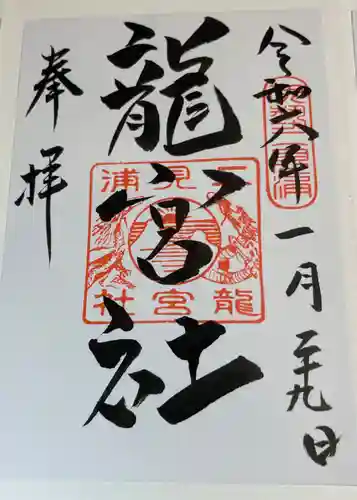 令和六年一月二十九日
龍宮社
奉拝
二見浦
龍宮社